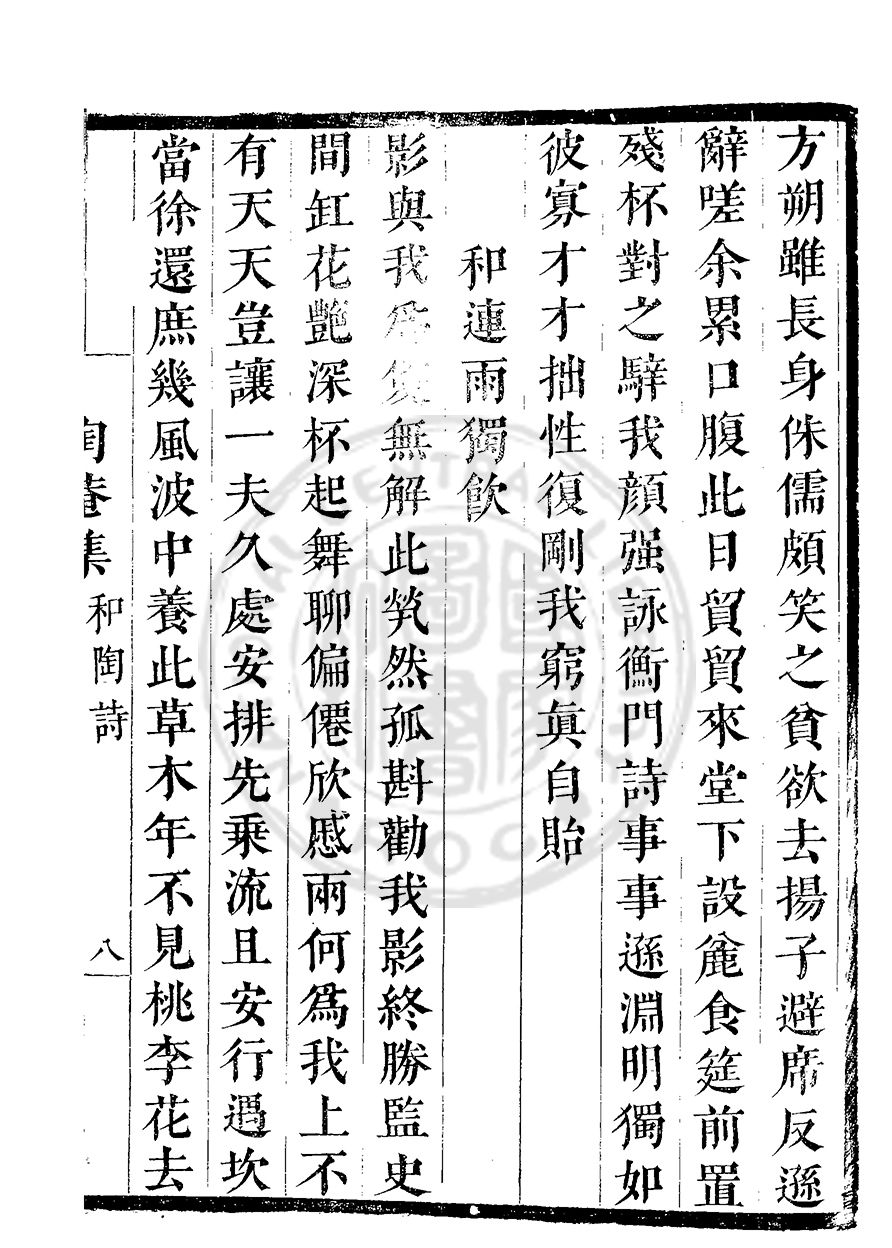 方朔雖長身侏儒頗笑之貧欲去揚子避席反遜
辭嗟余累口腹此日貿貿來堂下設麄食筵前置
殘杯對之騂我顏强詠衡門詩事事遜淵明獨如
彼寡才才拙性復剛我窮眞自貽
和連雨獨飮
影與我爲賓無解此煢然孤斟勸我影終勝監史
間缸花艷深杯起舞聊偏僊欣慼兩何爲我上不
有天天豈讓一夫久處安排先乗流且安行遇坎
當徐還庶幾風波中養此草木年不見桃李花去
陶菴集
和陶詩
八